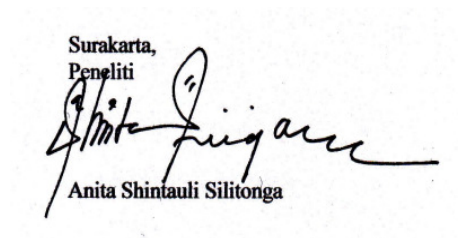 Surakarta,
Peneliti
Anita Shintauli Silitonga